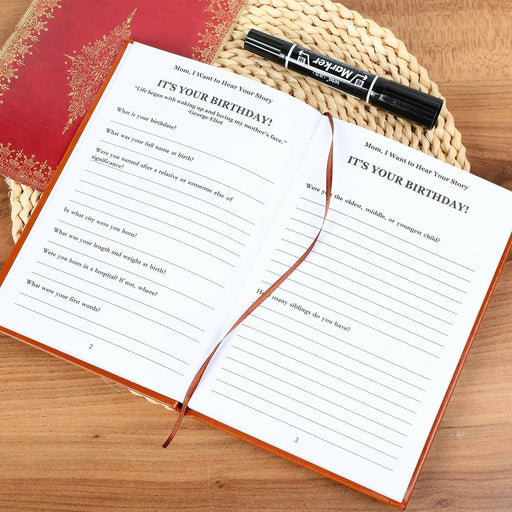 Mom, I Want to Hear Your Story
IT'S YOUR BIRTHDAY!
"Life began with waking up and loving my mother's face."
-George Eliot
What is your birthdate?
What was your full name at birth?
Were you named after a relative or someone else of
significance?
In what city were you born?
What was your length and weight at birth?
Were you born in a hospital? If not, where?
What were your first words?
2
Mom, I Want to Hear Your Story
IT'S YOUR BIRTHDAY!
Were you the oldest, middle, or youngest child?
How many siblings do you have?
3
Marker